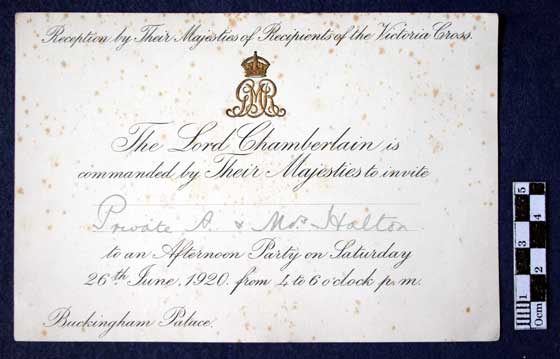 Reception by Their Majesties of Recipients of the Victoria Cross.
The Lord Chamberlain is
commanded by Their Majesties to invite
Private A. & Mrs Halton
to an Afternoon Party on Saturday
26th June, 1920, from 4 to 6 o'clock p.m.
Buckingham Palace.
5
4
3
2
1
0cm